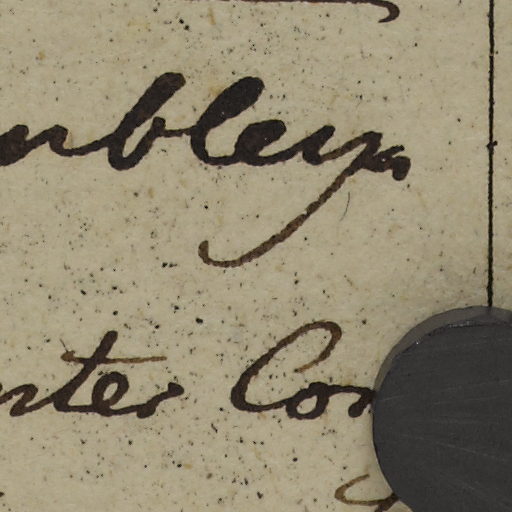 mbley
nter Con